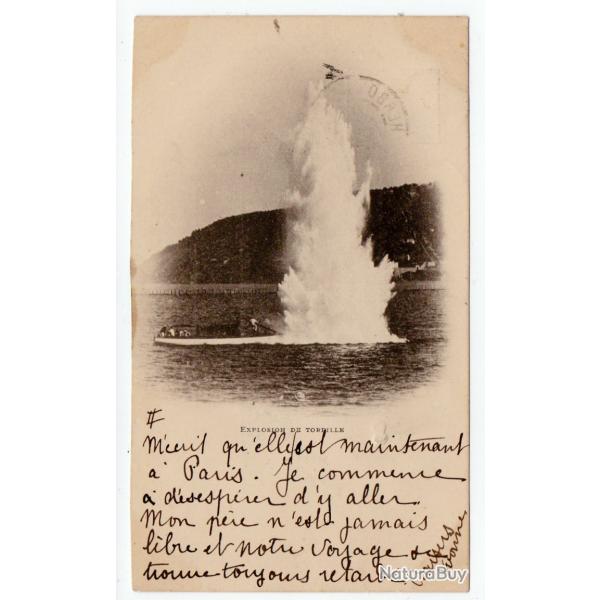 EXPLOSION DE TORPILLE
#
M'ecrit qu'elle est maintenant
à Paris. Je commence
à désespérer d'y aller.
Mon père n'est jamais
libre et notre voyage se
trouve toujours retardé
Yvonne
NaturaBuy